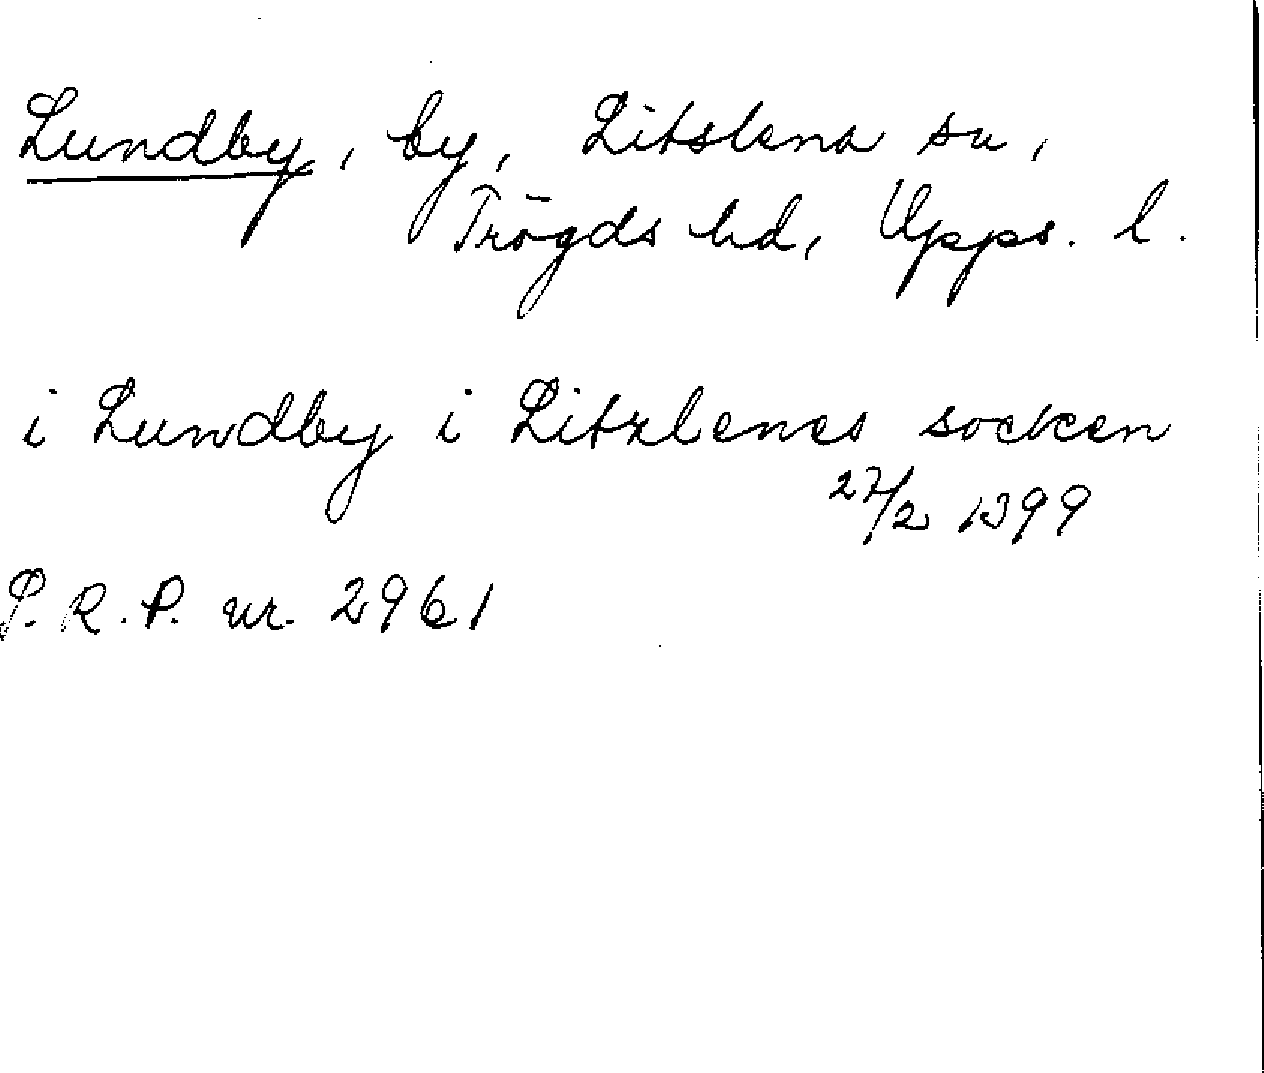 Lundby, by, Litslena sn,
Trögds hd, Upps. l.
i Lundby i Litzlenes socken
27/2 1399
P.R.P. nr. 2961